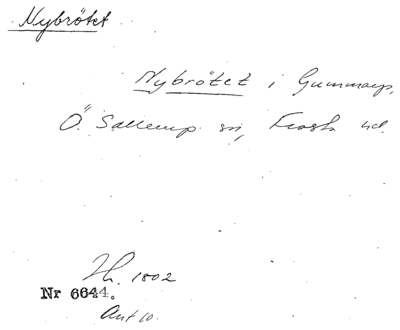 Nybrötet
Nybrötet i Gummarp,
Ö. Sallerup sn, Frosta hd.
Th. 1802
Nr 6644.
Ant 10.